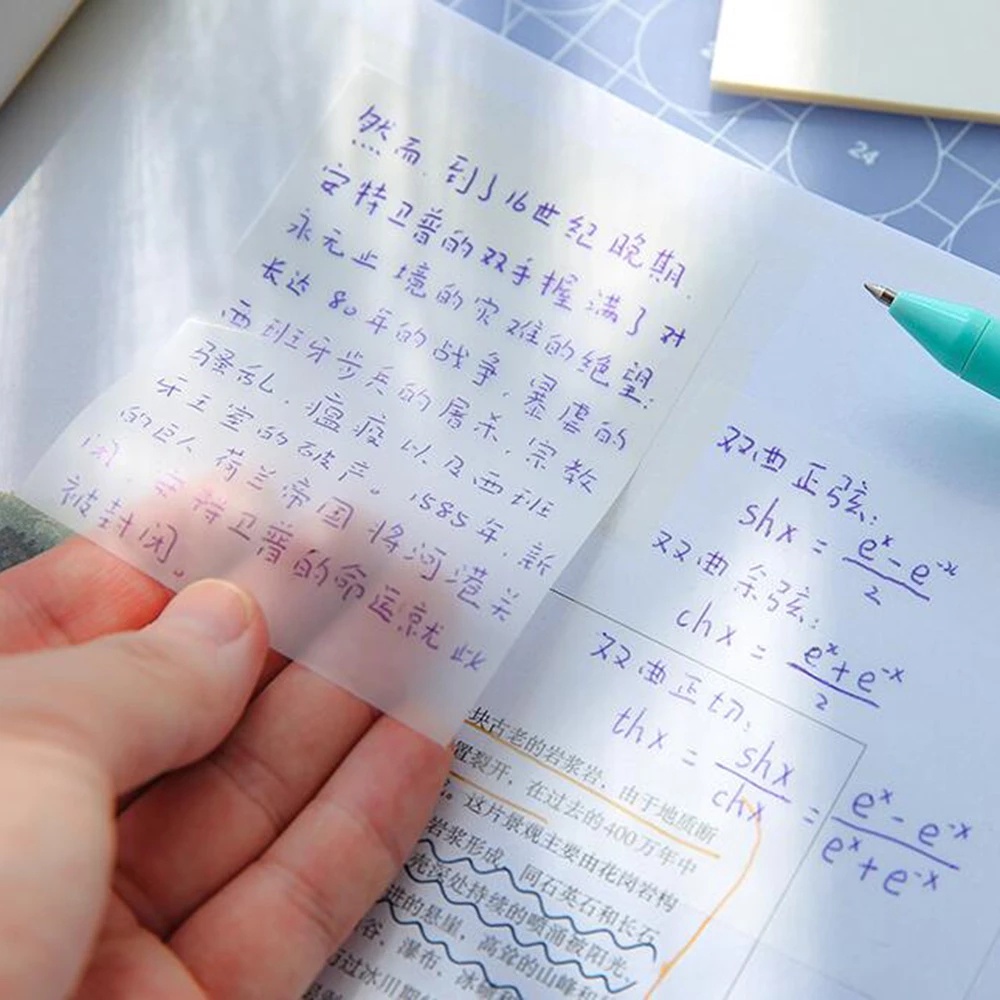 然而,到了16世纪晚期.
安特卫普的双手握满了对
永无止境的灾难的绝望:
长达80年的战争,暴虐的
西班牙步兵的屠杀,宗教
骚乱,瘟疫以及西班
牙王室的破产。1585年,新
的巨人荷兰帝国将河港关
闭,安特卫普的命运就此
被封闭。
24
双曲正弦:
shx = (e^x - e^-x)/2
双曲余弦:
chx = (e^x + e^-x)/2
双曲正切:
thx = shx/chx = (e^x - e^-x)/(e^x + e^-x)
块古老的岩浆岩,由于地质断
置裂开,在过去的400万年中
。这片景观主要由花岗岩构
岩浆形成,同石英石和长石
壳深处持续的喷涌被阳光、
进的悬崖,高耸的山峰和
谷、瀑布、冰
过冰川期